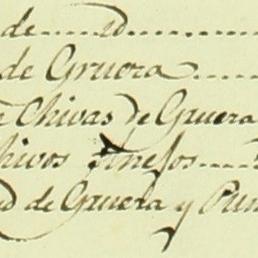 de
de Gruera
Chivas de Gruera
hivos Añejos
d de Gruera y